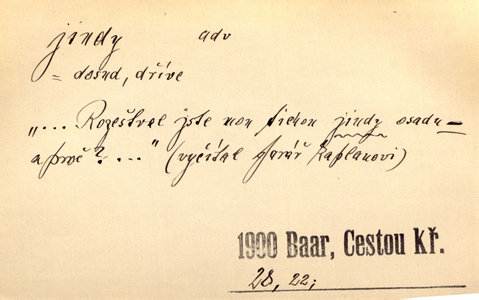 jindy adv
= dosud, dříve
„... Rozeštval jste mou tichou jindy osadu —
a proč? ..." (vyčítal farář kaplanovi)
1900 Baar, Cestou Kř.
28, 22;